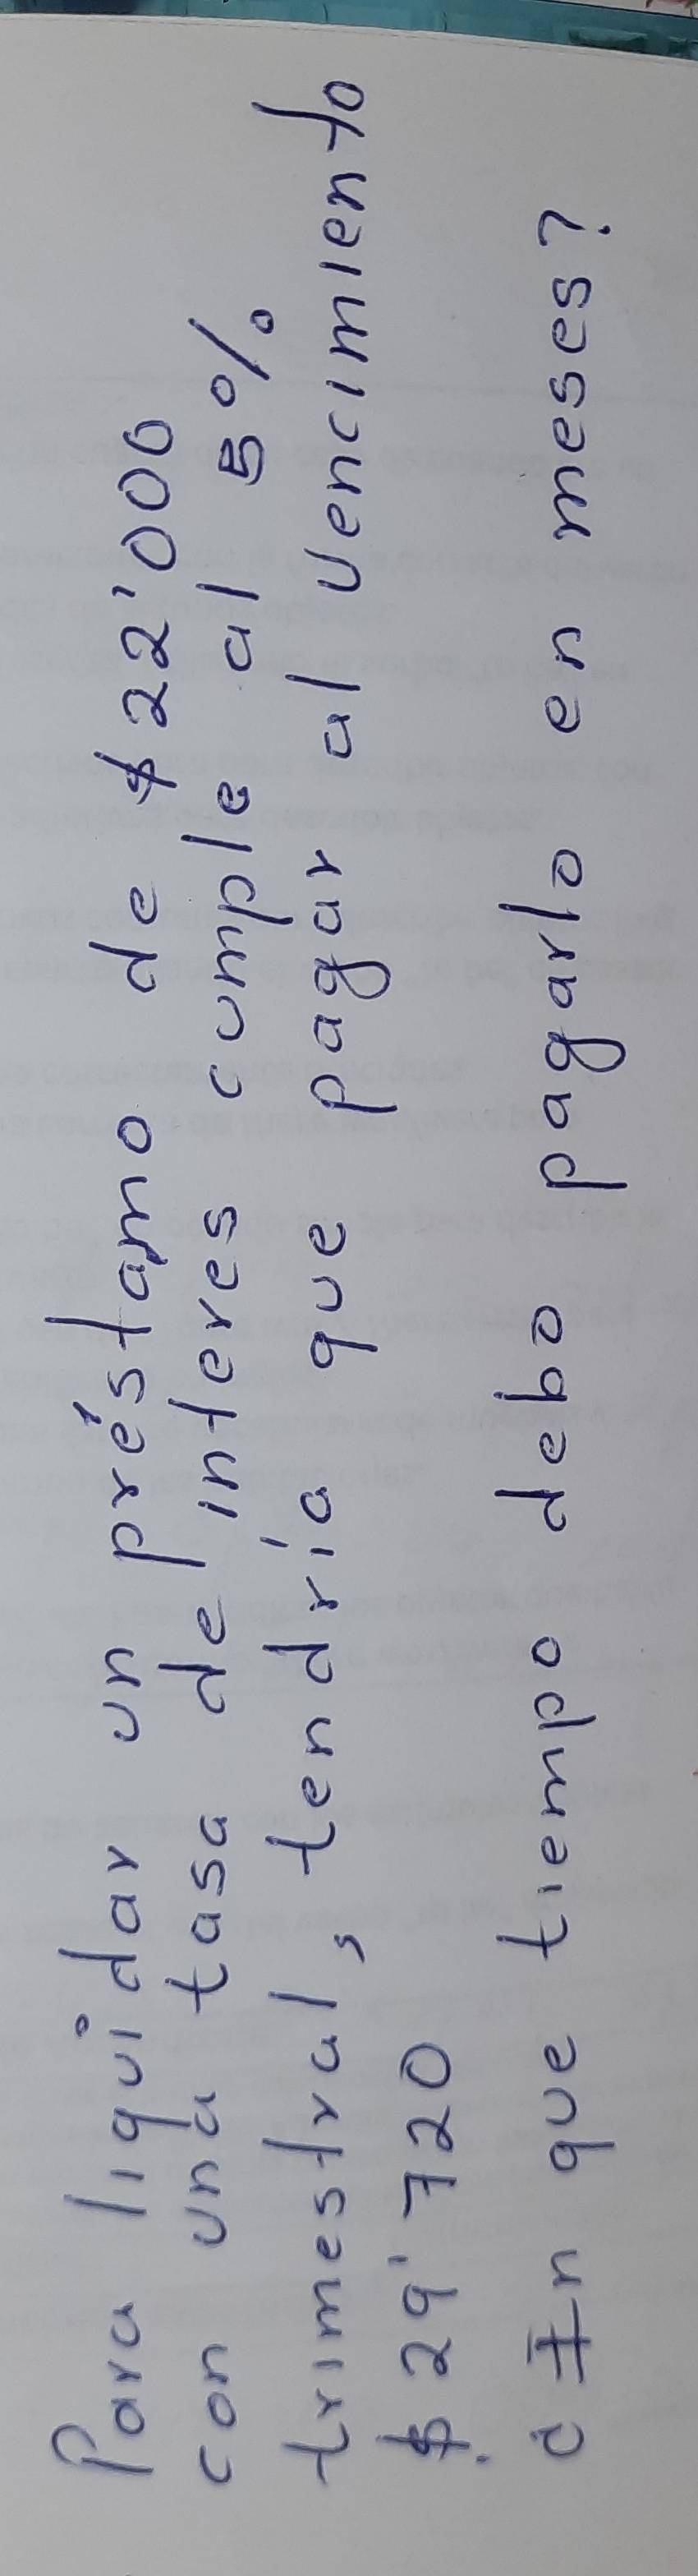 Para liquidar un préstamo de $22'000
con una tasa de interes cumple al 5%
trimestral, tendría que pagar al vencimiento
$29'720
¿En que tiempo debo pagarlo en meses?